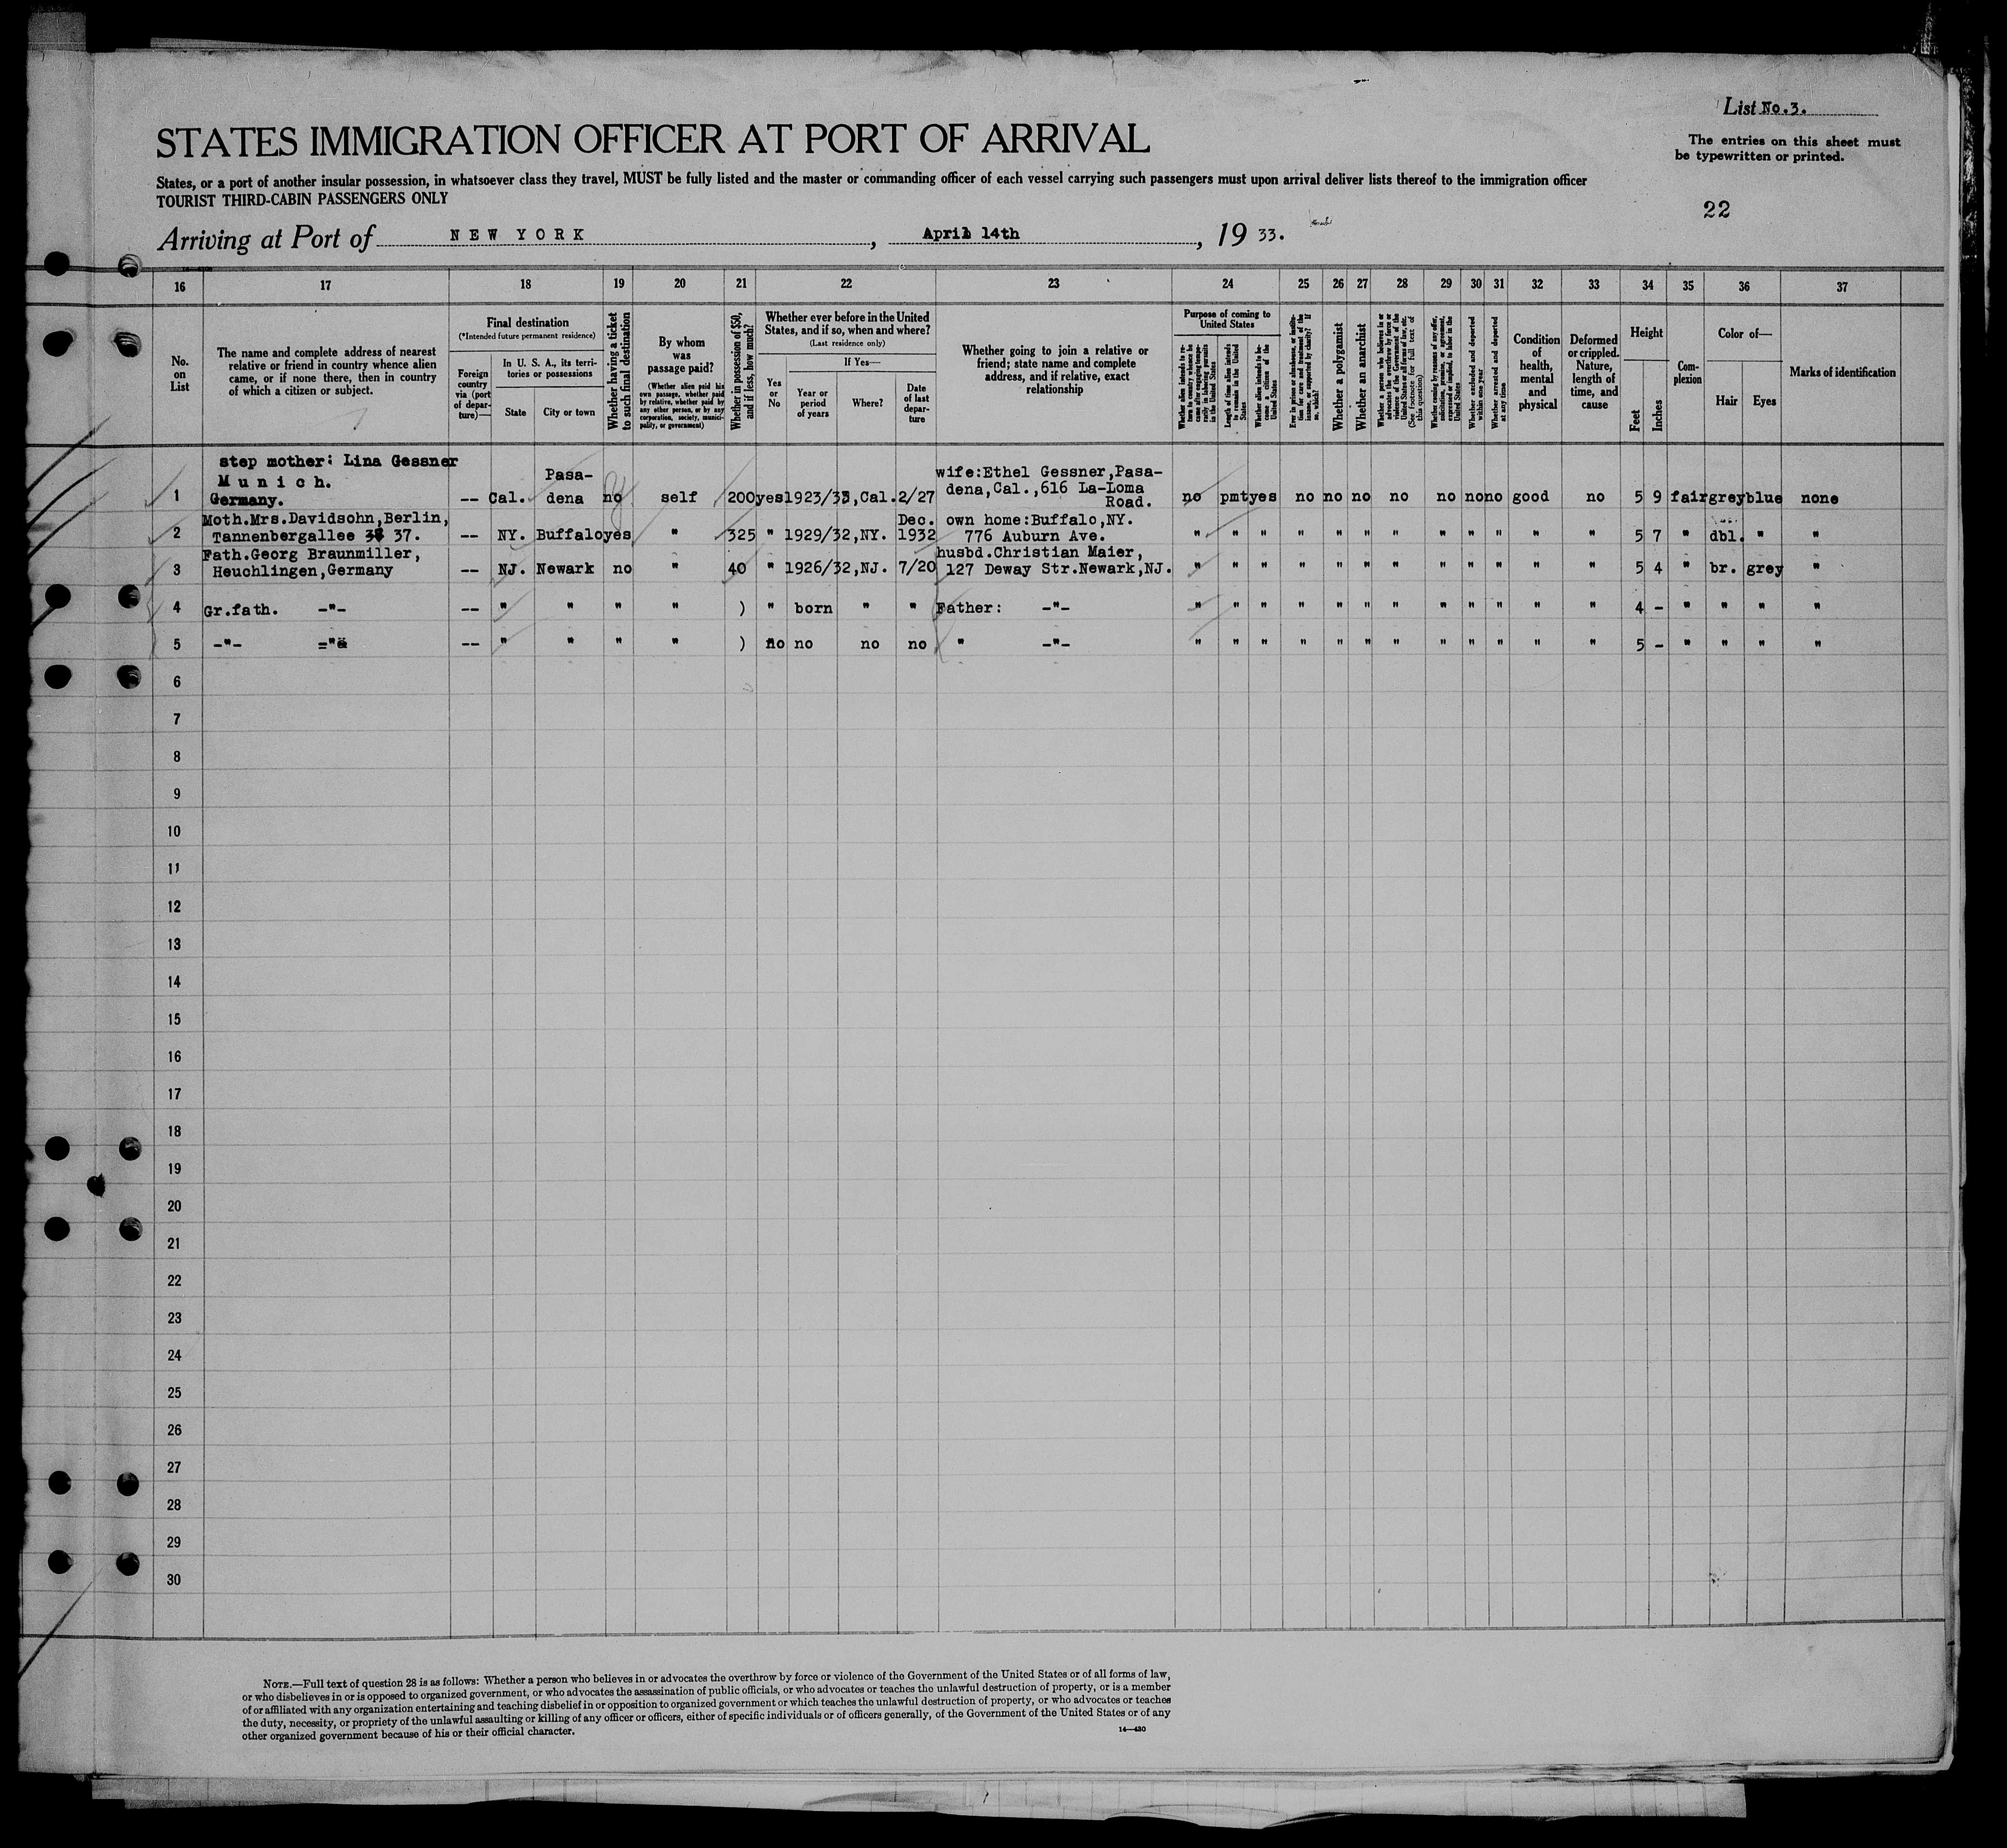 List No.3.
STATES IMMIGRATION OFFICER AT PORT OF ARRIVAL
The entries on this sheet must
be typewritten or printed.
States, or a port of another insular possession, in whatsoever class they travel, MUST be fully listed and the master or commanding officer of each vessel carrying such passengers must upon arrival deliver lists thereof to the immigration officer
TOURIST THIRD-CABIN PASSENGERS ONLY
22
Arriving at Port of NEW YORK, April 14th, 19 33.
16 17 18 19 20 21 22 23 24 25 26 27 28 29 30 31 32 33 34 35 36 37
No.
on
List
The name and complete address of nearest
relative or friend in country whence alien
came, or if none there, then in country
of which a citizen or subject.
Final destination
(*Intended future permanent residence)
Foreign
country
via (port
of depar-
ture)—
In U. S. A., its terri-
tories or possessions
State City or town
Whether having a ticket
to such final destination
By whom
was
passage paid?
(Whether alien paid his
own passage, whether paid
by relative, whether paid by
any other person, or by any
corporation, society, munici-
pality, or government)
Whether in possession of $50,
and if less, how much?
Whether ever before in the United
States, and if so, when and where?
(Last residence only)
Yes
or
No
If Yes—
Year or
period
of years
Where?
Date
of last
depar-
ture
Whether going to join a relative or
friend; state name and complete
address, and if relative, exact
relationship
Purpose of coming to
United States
Length of time alien intends
to remain in the United
States
Whether alien intends to be-
come a citizen of the
United States
Whether a polygamist
Whether an anarchist
Whether excluded and deported
within one year
Whether arrested and deported
at any time
Condition
of
health,
mental
and
physical
Deformed
or crippled.
Nature,
length of
time, and
cause
Height
Feet
Inches
Com-
plexion
Color of—
Hair Eyes
Marks of identification
step mother: Lina Gessner
Munich.
Germany.
1 -- Cal. Pasa-
dena no self 200 yes 1923/33,Cal. 2/27 wife:Ethel Gessner,Pasa-
dena,Cal.,616 La-Loma
Road. no pmt yes no no no no no no no good no 5 9 fair grey blue none
Moth.Mrs.Davidsohn,Berlin,
2 Tannenbergallee 37. -- NY. Buffalo yes " 325 " 1929/32,NY. Dec.
1932 own home:Buffalo,NY.
776 Auburn Ave. " " " " " " " " " " " " 5 7 " dbl. " "
Fath.Georg Braunmiller,
3 Heuchlingen,Germany -- NJ. Newark no " 40 " 1926/32,NJ. 7/20 husbd.Christian Maier,
127 Deway Str.Newark,NJ. " " " " " " " " " " " " 5 4 " br. grey "
4 Gr.fath. -"- -- " " " " ) " born " " Father: -"- " " " " " " " " " " " " 4 - " " " "
5 -"- -- " " " " ) no no no no " -"- " " " " " " " " " " " " 5 - " " " "
6
7
8
9
10
11
12
13
14
15
16
17
18
19
20
21
22
23
24
25
26
27
28
29
30
NOTE.—Full text of question 28 is as follows: Whether a person who believes in or advocates the overthrow by force or violence of the Government of the United States or of all forms of law,
or who disbelieves in or is opposed to organized government, or who advocates the assassination of public officials, or who advocates or teaches the unlawful destruction of property, or is a member
of or affiliated with any organization entertaining and teaching disbelief in or opposition to organized government or which teaches the unlawful destruction of property, or who advocates or teaches
the duty, necessity, or propriety of the unlawful assaulting or killing of any officer or officers, either of specific individuals or of officers generally, of the Government of the United States or of any
other organized government because of his or their official character.
14—430